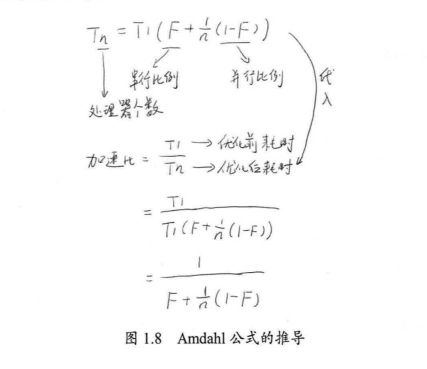 Tn = T1 ( F + 1/n (1-F) )
串行比例 并行比例
处理器个数
代入
加速比 = T1/Tn → 优化前耗时
→ 优化后耗时
= T1 / T1(F + 1/n (1-F))
= 1 / F + 1/n (1-F)
图 1.8 Amdahl 公式的推导